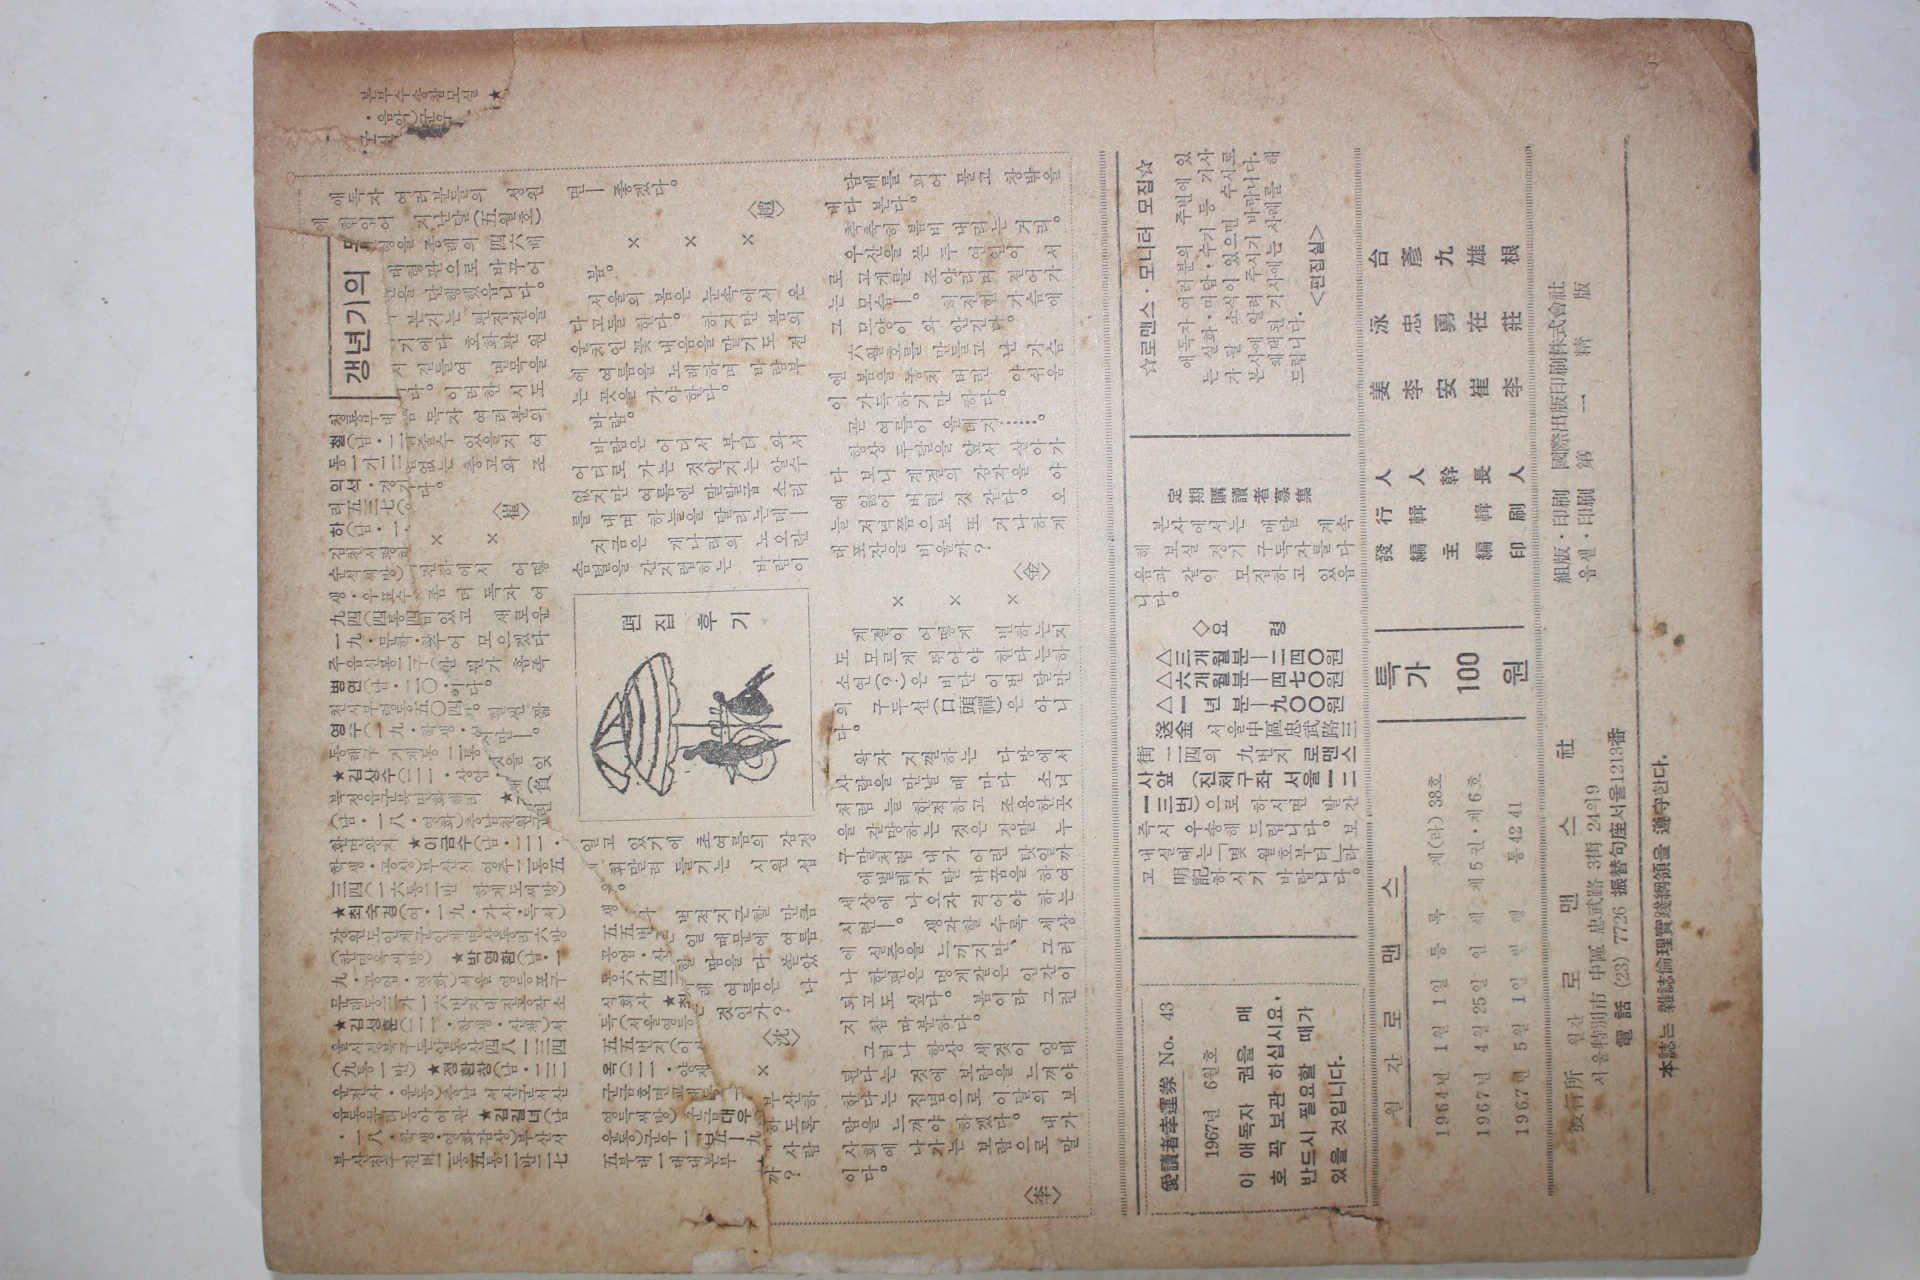 애독자 여러분들의 성원
에 힘입어 지난달(五월호)
형을 종래의 四六배
대형판으로 바꾸어
을 단행했읍니다.
본기는 편집진을
기에다 호화판 원
시 곁들여 면목을
다. 이러한 시도
독자 여러분의
줄수 있을지 여
없는 충고와 조
다.
〈崔〉
× ×
전하에서 어떻
좀 더 독자 여
있고 새로운
주어 모으겠다
뭔가 흡족
이다.
훨씬 짧
지만―。
것을 잊
채(負
린
면― 좋겠다.
〈趙〉
× × ×
봄。
서울의 봄은 눈속에서 온
다고들 한다. 하지만 봄의
운치인 꽃내음을 맡기도 전
에 여름을 노래하며 바람부
는 곳을 가야한다。
바람。
바람은 어디서 부터 와서
어디로 가는 것인지는 알수
없지만 여름엔 말발굽 소리
를 내며 하늘을 달리는데―
지금은 개나리의 노오란
솜털을 간지럽히는 바람이
편집후기
일고 있기에 초여름의 감정
휘말려 들기는 시원 섭
벅적지근할 만큼
일 때문에 여름
할 땀을 다 쏟았
래 여름은 나
는 것인가?
〈沈〉
×
부산하
하도록
사람
까?
담배를 피어 물고 창밖을
내다 본다。
촉촉히 봄비 내리는 거리。
우산을 쓴 두 연인이 서
로 고개를 조아리며 걸어가
는 모습―。 허전한 가슴에
그 모양이 와 안긴다。
六월호를 만들고 난 가슴
엔 봄을 놓쳐 버린 아쉬움
이 가득하기만 하다。
곧 여름이 올테지……。
항상 두달을 앞서 살아가
다 보니 계절의 감각을 아
예 잃어 버린 것 같다。 오
늘 저녁쯤으로 또 거나하게
대포잔을 비울까?
〈金〉
× × ×
계절이 어떻게 변하는지
도 모르게 뛰어야 한다는하
소연(?)은 비단 이번 달만
의 구두선(口頭禪)은 아니
다。
왁자 지껄하는 다방에서
사람을 만날 때 마다 소녀
처럼 늘 한적하고 조용한곳
을 갈망하는 것은 정말 누
구말처럼 내가 어린 탓일까
애벌레가 탈 바꿈을 하여
세상에 나오자 겪어야 하는
시련―。 생각할 수록 세상
에 실증을 느끼지만、 그러
나 한편은 멍게같은 인간이
되고도 싶다。 봄이라 그런
지 참 따분하다。
그러나 항상 새것이 잉태
된다는 것에 보람을 느껴야
한다는 집념으로 이달의 보
람을 느껴야 하겠다。 내가
사회에 나가는 보람으로 말
이다。
〈李〉
갱년기의
본부수송참모실 ★
·음악)군우
철(남·二
동一가二二
익석·경기
리五三七(
하(남·一
김천시평화
순석씨방)
생·우표수
九四(四통四
一九·문학·
주읍신봉二구
병연(남·二〇·
천시부평동五〇四
영수(一九·학생·
동래구 거제동 二통
★김상수(二一·상업
북정읍군북면화해리 ★
(남·一八·영화)충남천원군
환면왕지 ★이금수(남·二一·
학생·공상)부산시 영주二동五
三四(一六통二반 하제도씨방)
★최숙경(여·一九·가사·독서)
강원도인제군인제면상동리六방
(한명옥씨방) ★박영환(남·一
九·공업·영화)서울 영등포구
문래동三가 一六번지대진공작소
★김성훈(二一·학생·산책)서
울시성북구돈암동산四八一二四
(九통一반) ★정환창(남·二二
운전사·운동)충남 서산군서산
읍동문리동아여관 ★김길녀(남
·一八·학생·영화감상)부산서
부산진구전번二동五통二반二七
☆로맨스·모니터 모집☆
애독자 여러분의 주변에 있
는 실화·미담·수기 등 기사
가 될 소식이 있으면 수시로
본사에 알려 주시기 바랍니다.
채택된 기사에는 사례를 해
드립니다.
<편집실>
定期購讀者募集
본사에서는 매달 계속
해 보실 정기 구독자를다
음과 같이 모집하고 있읍
니다。
◇요 령
△三개월분―二四〇원
△六개월분―四七〇원
△一 년 분―九〇〇원
送金 서울中區忠武路三
街 二四의 九번지 로맨스
사앞 (진체구좌 서울一二
一三번)으로 하시면 발간
즉시 우송해 드립니다。 보
내실때는「몇 월호부터」라
고 明記하시기 바랍니다。
愛讀者幸運券 No. 43
1967년 6월호
이 애독자 권을 매
호 꼭 보관 하십시요.
반드시 필요할 때가
있을 것입니다.
發行人 姜泳台
編輯人 李忠彥
主幹 安勇九
編輯長 崔在雄
印刷人 李莊根
특가 100원
월간 로맨스
1964년 1월 1일 등록 제(라) 38호
1967년 4월 25일 인쇄 제5권·제6호
1967년 5월 1일 발행 통42 41
組版·印刷 國際出版印刷株式會社
옵셑·印刷 第一精版
發行所 월간 로맨스社
서울特別市 中區 忠武路 3街 24의9
電話 (23) 7726 振替句座서울1213番
本誌는 雜誌倫理實踐綱領을 遵守한다.